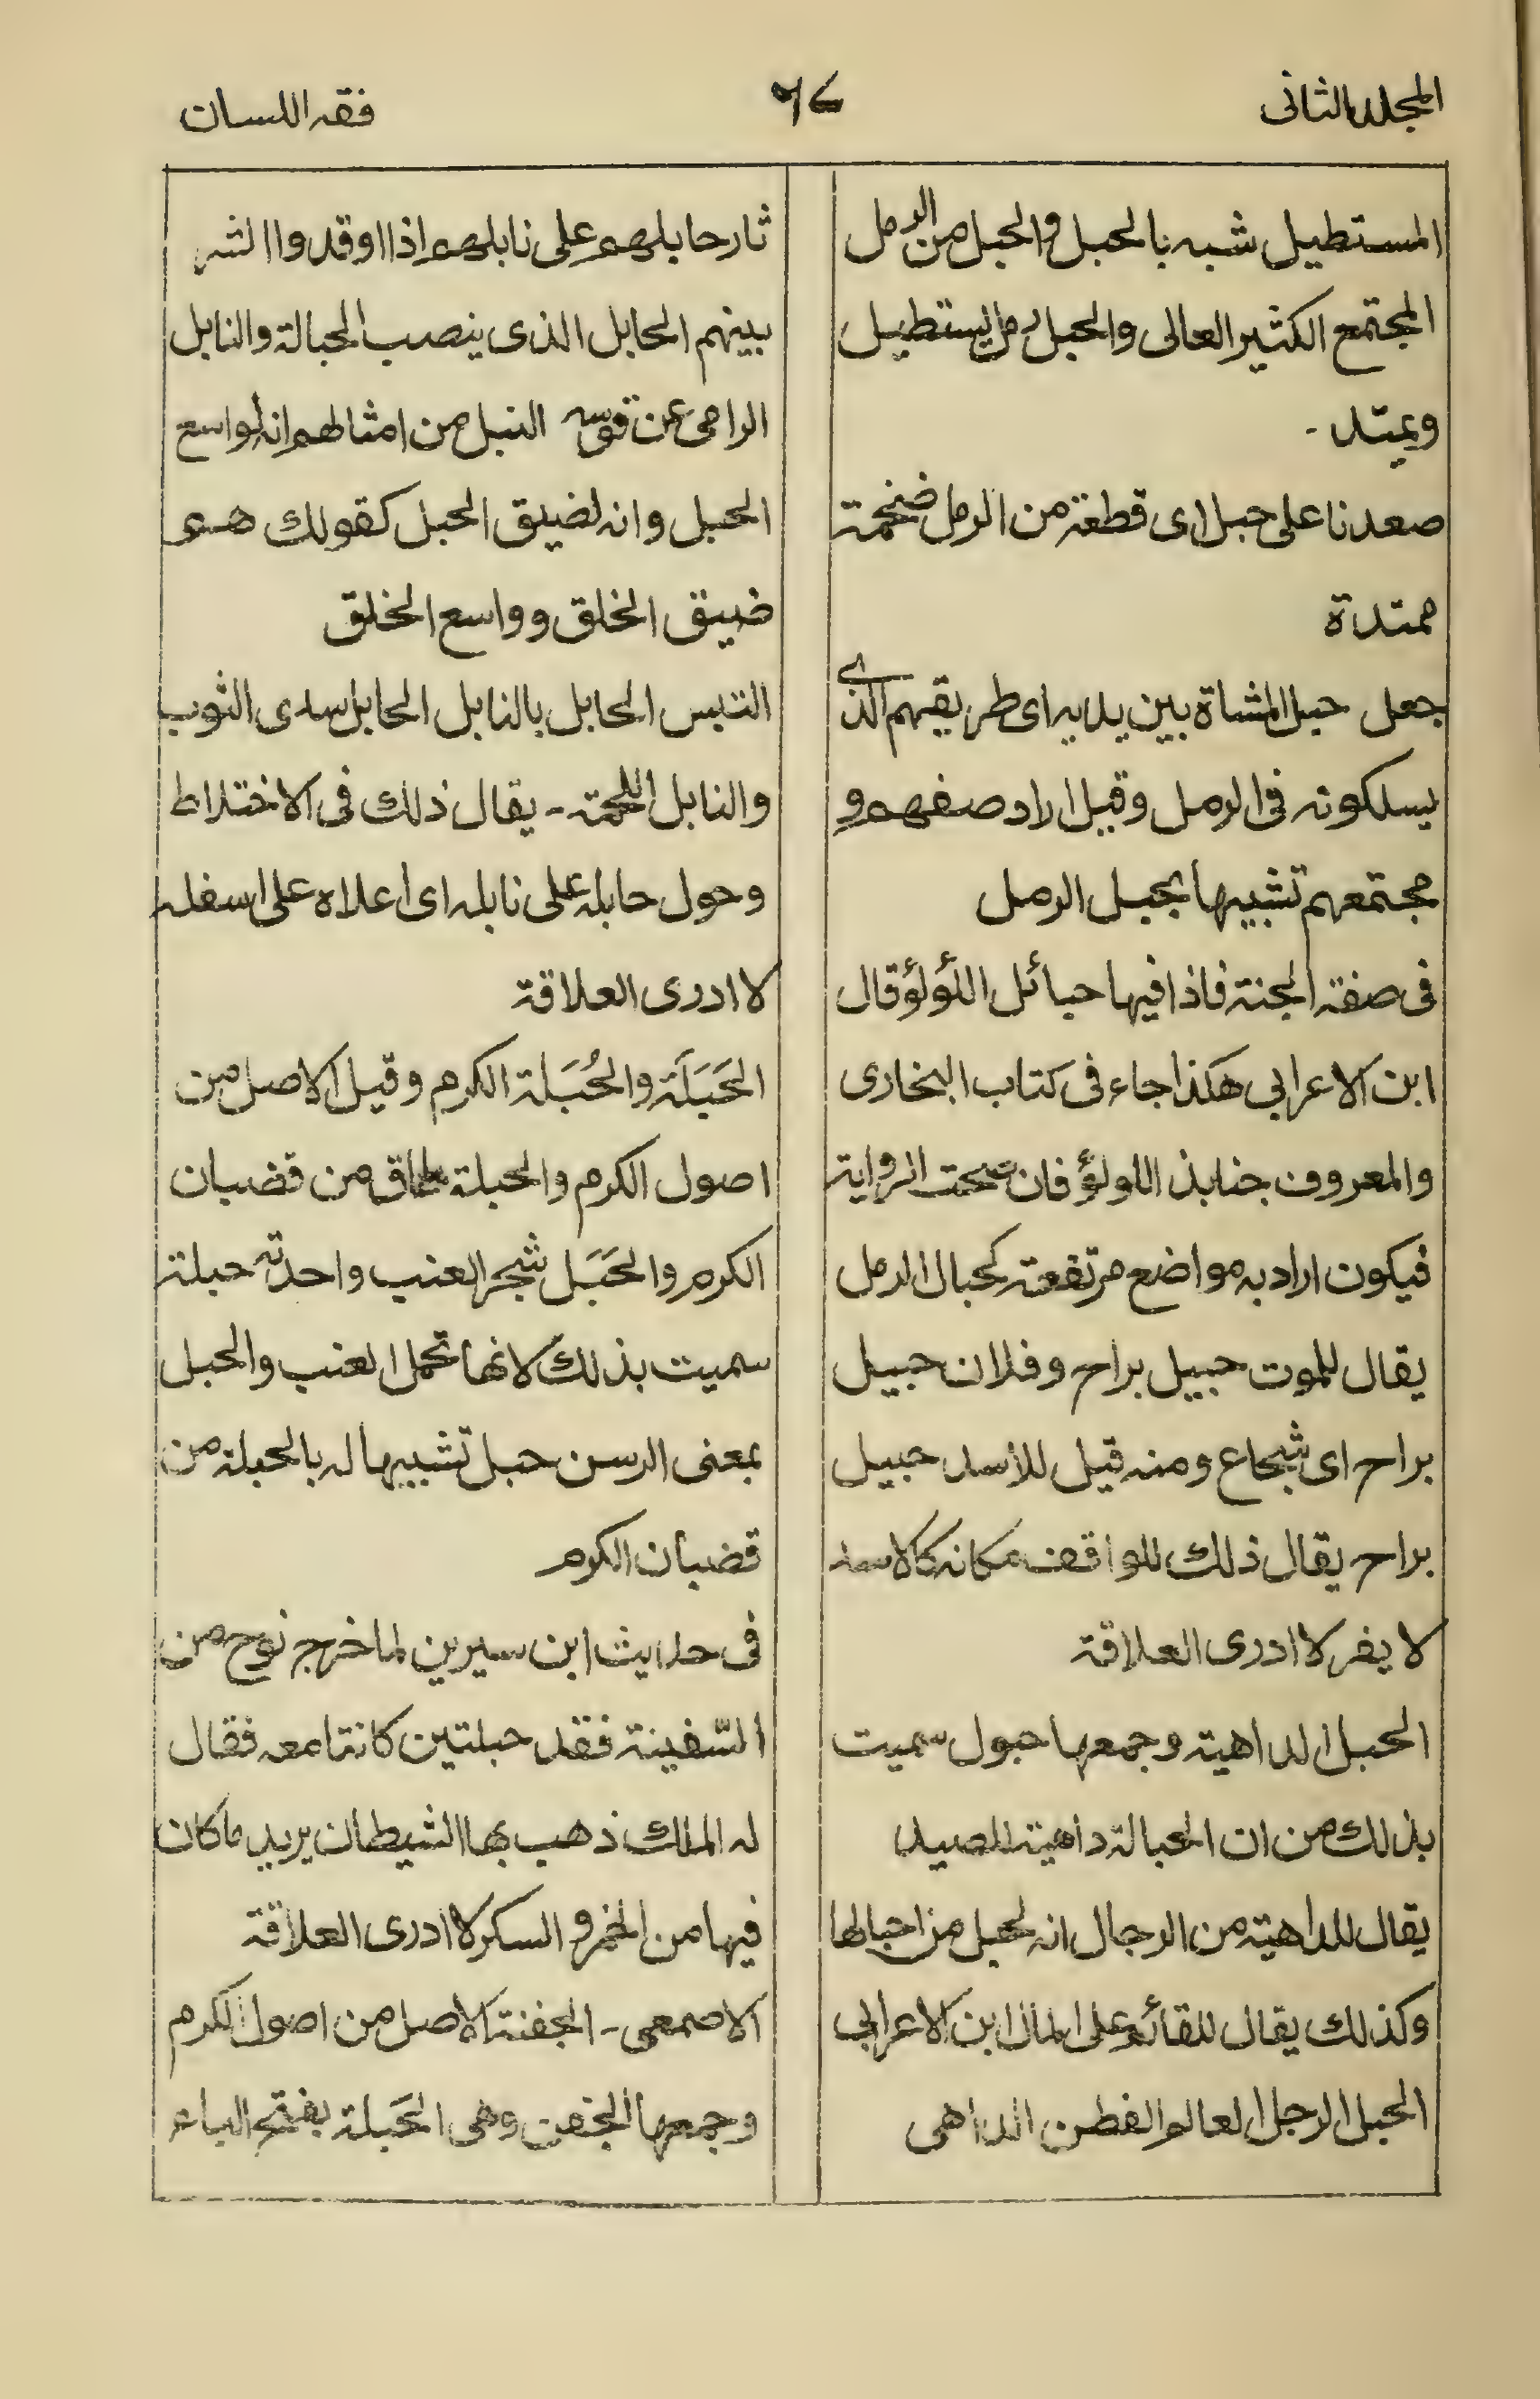 المجلد الثانى
٦٤
فقہ اللسان
المستطيل شبہ بالحبل والحبل من الرمل
المجتمع الكثير العالى والحبل رمل يستطيل
ويمتد -
صعدنا على حبل اى قطعة من الرمل ضخمة
ممتدة
جعل حبل المشاة بين يديہ اى طريقہم الذى
يسلكونہ فى الرمل وقيل اراد صفهم و
مجتمعہم تشبيہا بحبل الرمل
فى صفة الجنة فاذا فيہا حبائل اللؤلؤ قال
ابن الاعرابى هكذا جاء فى كتاب البخارى
والمعروف جنابذ اللولؤ فان صحت الرواية
فيكون اراد بہ مواضع مرتفعة كحبال الرمل
يقال للموت حبيل براح وفلان حبيل
براح اى شجاع ومنہ قيل للأسد حبيل
براح يقال ذلك للواقف مكانہ كالاسد
لا يفر لا ادرى العلاقة
الحبل الداهية وجمعہا حبول سميت
بذلك من ان الحبالة داهية للصيد
يقال للداهية من الرجال انہ لحبل من احبالها
وكذلك يقال للقائم على المال ابن الاعرابى
الحبل الرجل العالم الفطن الداهى
ثار حابلهم على نابلهم اذا اوقدوا الشر
بينہم الحابل الذى ينصب الحبالة والنابل
الرامى عن قوسہ النبل من امثالهم انہ لواسع
الحبل وانہ لضيق الحبل كقولك هو
ضيق الخلق وواسع الخلق
التبس الحابل بالنابل الحابل سدى الثوب
والنابل اللحمة - يقال ذلك فى الاختلاط
وحول حابلہ على نابلہ اى اعلاه على اسفلہ
لا ادرى العلاقة
الحَبَلَة والحُبَلة الكرم وقيل الاصل من
اصول الكرم والحبلة طاق من قضبان
الكرم والحَبَل شجر العنب واحدتہ حبلة
سميت بذلك لانها تحمل العنب والحبل
بمعنى الرسن حبل تشبيہا لہ بالحبلة من
قضبان الكرم
فى حديث ابن سيرين لما خرج نوح من
السّفينة فقد حبلتين كانتا معہ فقال
لہ الملك ذهب بها الشيطان يريد ما كان
فيہا من الخمر والسكر لا ادرى العلاقة
الاصمعى - الجفنة الاصل من اصول الكرم
وجمعہا الجفن وهى الحَبلة بفتح الباء